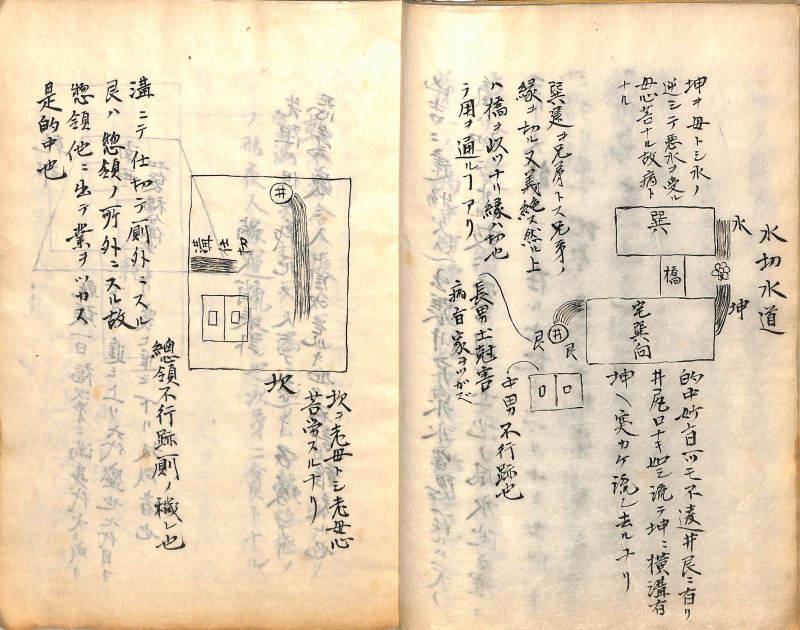 水切水道
水
坤
坤ヲ母トシ水ノ
逆シテ悪水ヲ受ル
母心苦ナル故病ト
ナル
巽
橋
宅巽向
巽
艮
井
艮
巽艮ヲ兄弟トス兄弟ノ
縁ヲ切ル又義絶ス然ル上
ハ橋ヲ以ツナリ縁ハ切也
テ用ヲ通ルフアリ
長男土尅害
病盲家ヲツガズ
中男不行跡也
的中妙言一ツモ不違井艮ニ有リ
井尻口ナキ如シ流テ坤ニ横溝有
坤ヘ突カケ流シ去ルナリ
井
溝仕切
坎
坎ヲ老母トシ老母心
苦労スルナリ
溝ニテ仕切テ厠外ニスル
艮ハ惣領ノ所外ニスル故
惣領他ニ出テ業ヲツカス
是的中也
總領不行跡厠ノ穢レ也